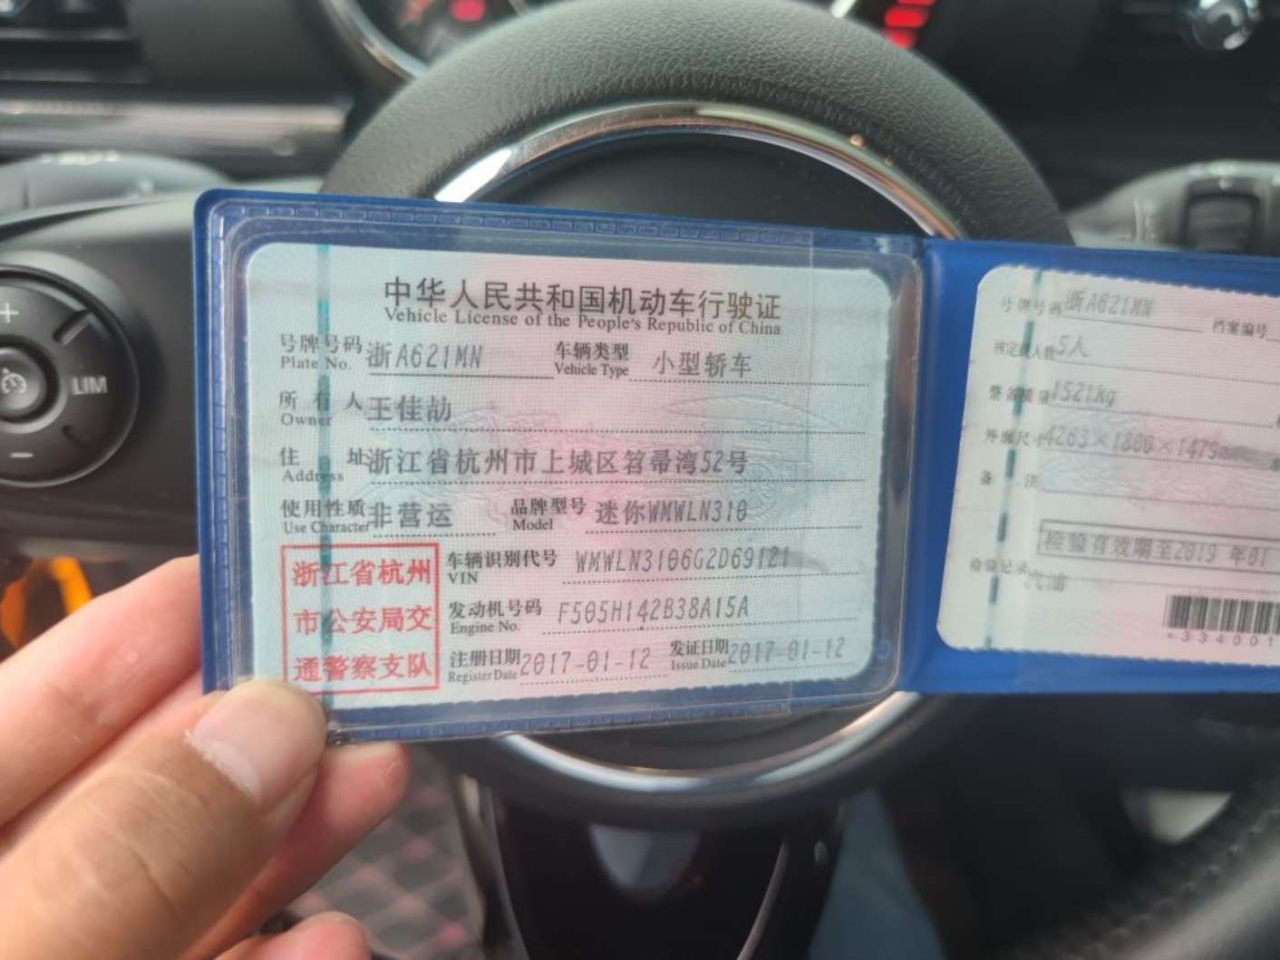 中华人民共和国机动车行驶证
Vehicle License of the People's Republic of China
号牌号码 浙A621MN 车辆类型 小型轿车
Plate No. Vehicle Type
所有人 王佳劼
Owner
住址 浙江省杭州市上城区笤帚湾52号
Address
使用性质 非营运 品牌型号 迷你WMWLN310
Use Character Model
浙江省杭州
市公安局交
通警察支队
车辆识别代号 WMWLN3106G2D69121
VIN
发动机号码 F505H142B38A15A
Engine No.
注册日期 2017-01-12 发证日期 2017-01-12
Register Date Issue Date
号牌号码 浙A621MN 档案编号
核定载人数 5人
整备质量 1521kg
外廓尺寸 4263×1800×1479
备注
检验有效期至2019 年01
检验记录
汽油
*334001
LIM